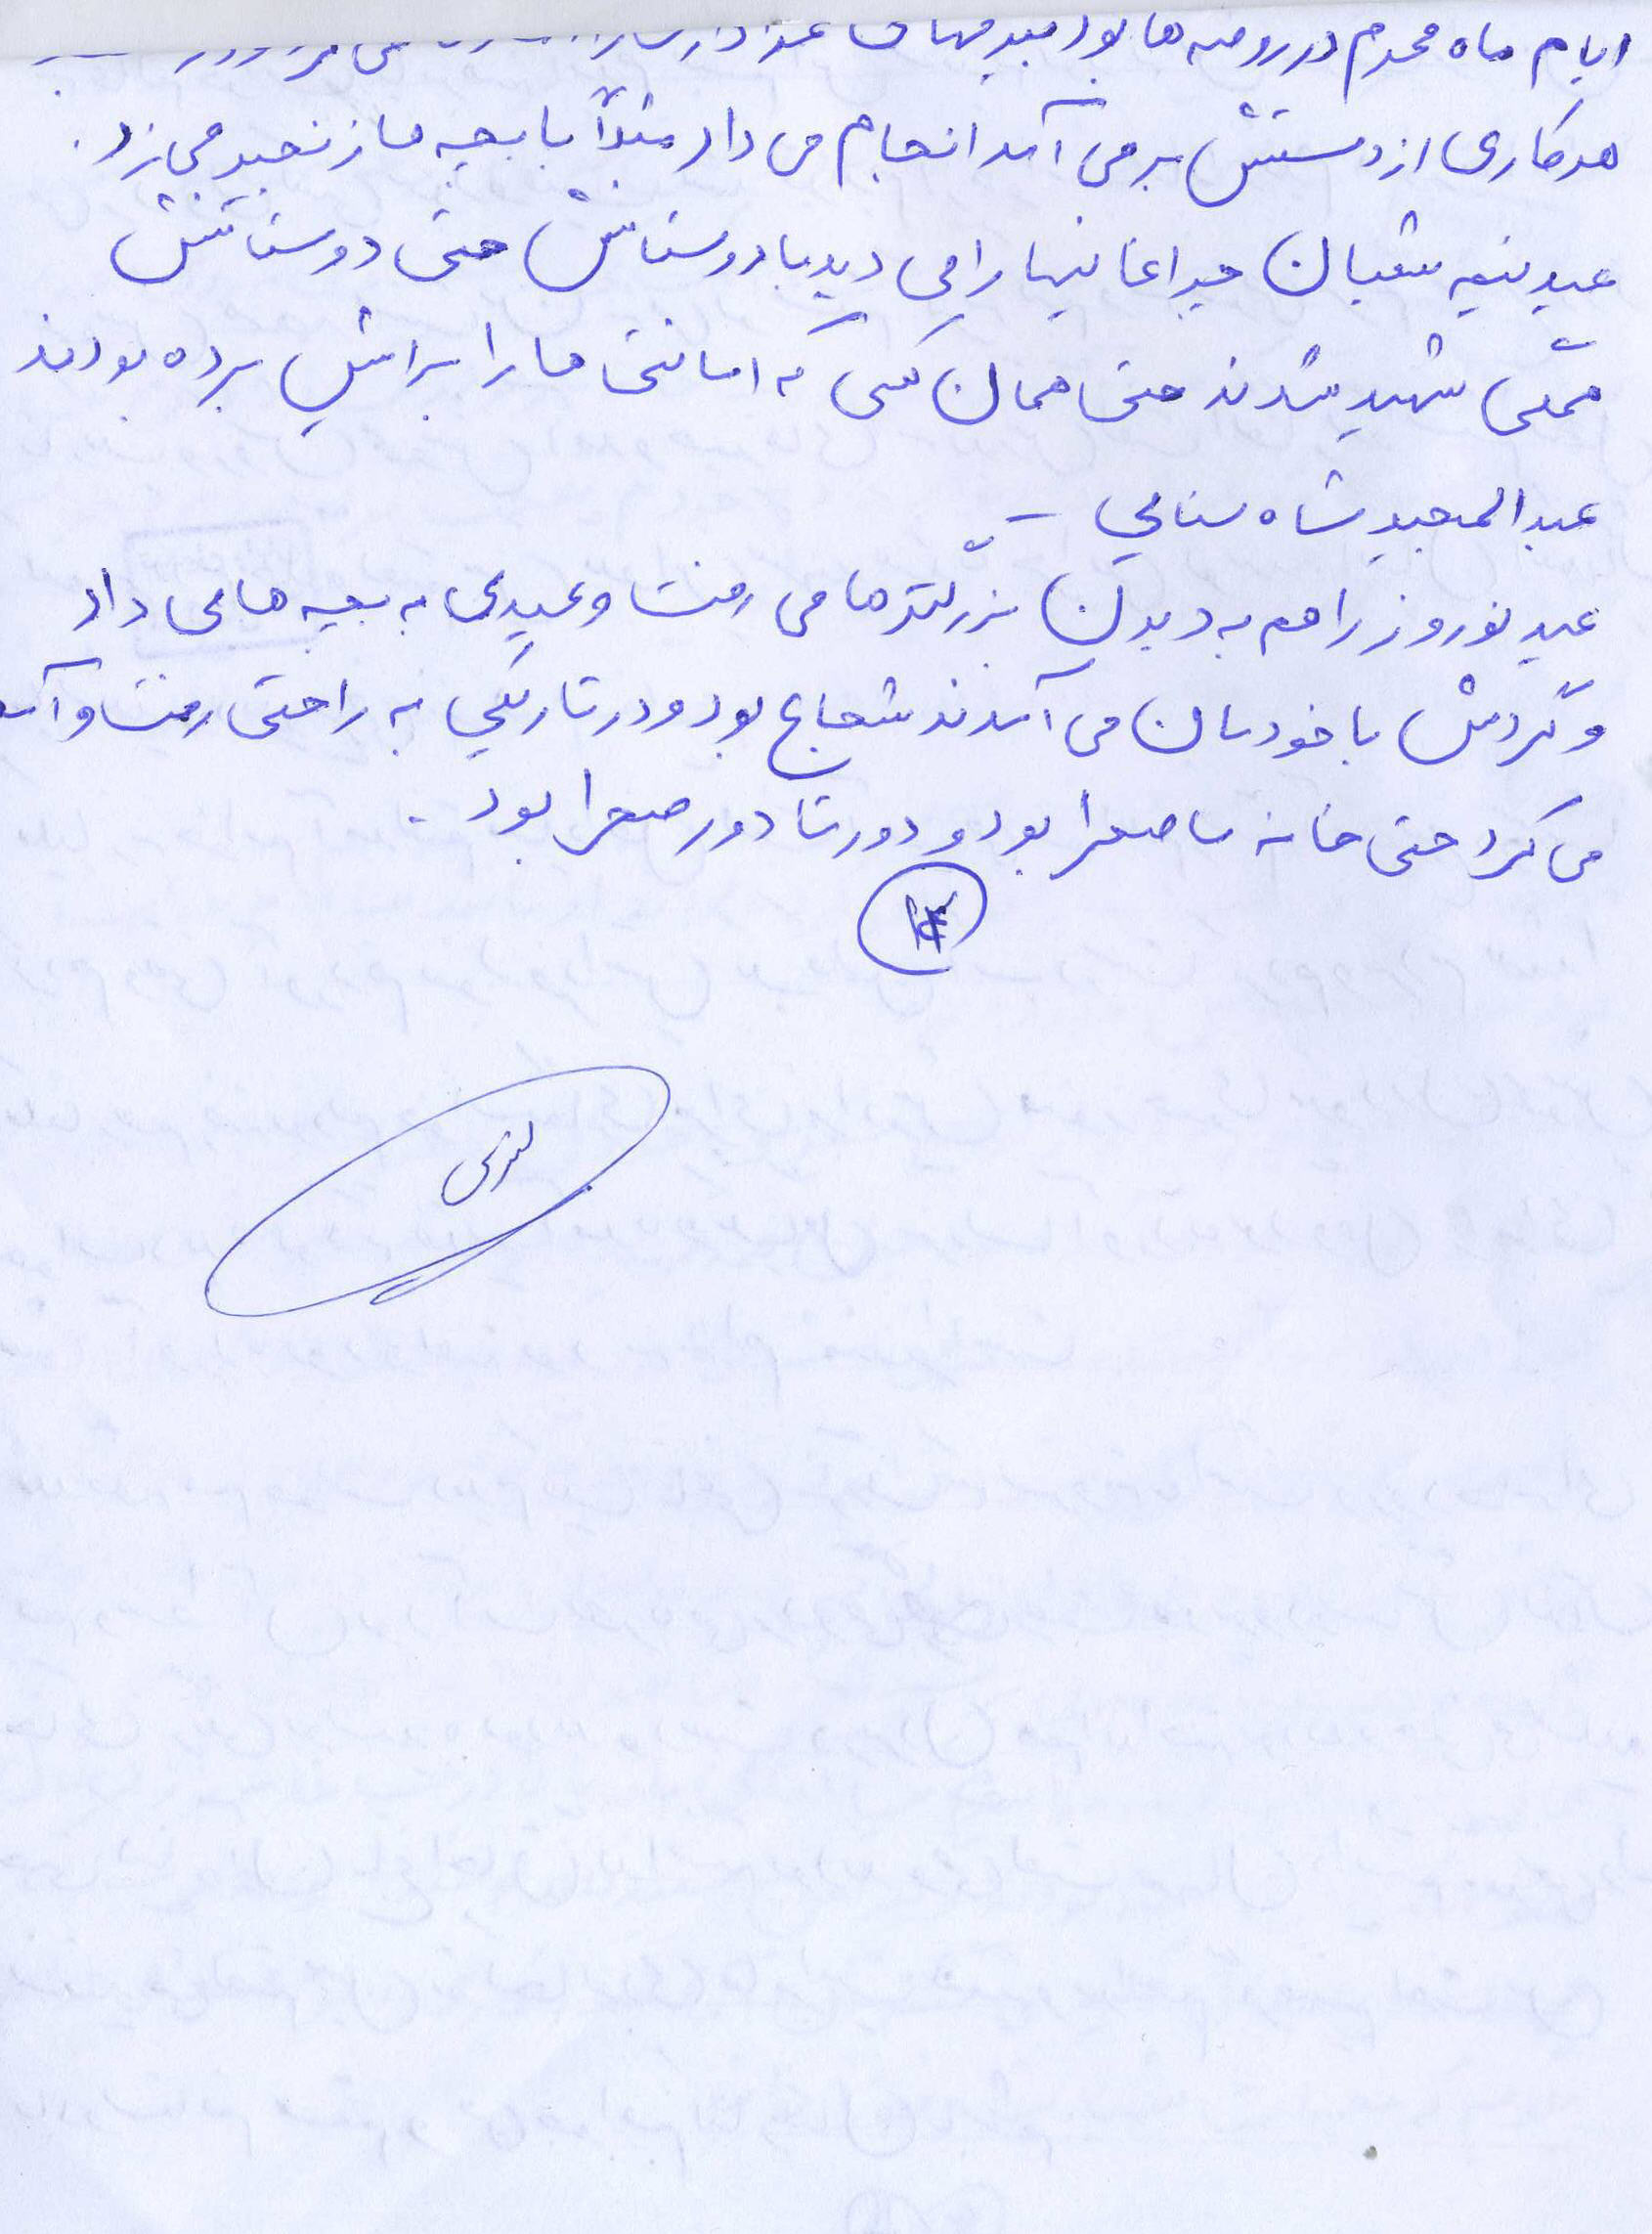 ایام ماه محرم در روضه ها بود
هر کاری از دستش بر می آمد انجام می داد مثلاً با بچه ها زنجیر می زد.
عید نیمه شعبان چراغانیها را می دید با دوستانش حتی دوستانش
همگی شهید شدند حتی همان کسی که امانتی ها را برایش برده بودند
عبدالمجید شاه سنایی –
عید نوروز را هم به دیدن بزرگترها می رفت و عیدی به بچه ها می داد
و گردش با خودمان می آمدند شجاع بود و در تاریکی به راحتی رفت و آمد
می کرد حتی خانه ما صحرا بود و دور تا دور صحرا بود.